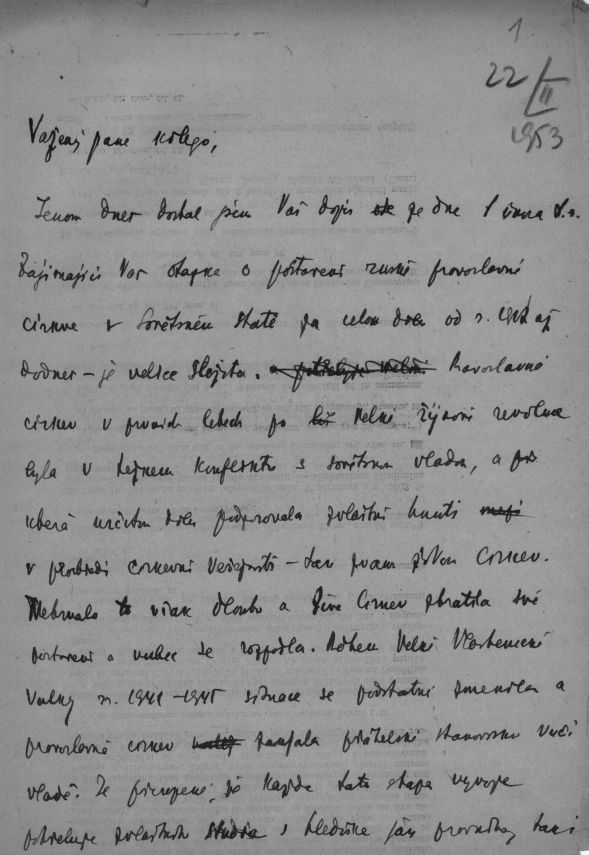 1
22/II
1953
Vážený pane kolego,
Jenom dnes dostal jsem Váš dopis ze dne 1 února t.r.
Zajímající Vas otazka o postaveni ruské pravoslavné
cirkve v Sovětském státě za celou dobu od r. 1917 až
dodnes – je velice složita. Pravoslavná
cirkev v prvních letech po Velké Říjnové revoluce
byla v tezkem konfliktu s sovětskou vladou, a
která určitou dobu podporovala zvlaštní hnutí
v prostředí cirkevní veřejnosti – tak zvanou živou Cirkev.
Netrvalo to však dlouho a Živa Cirkev ztratila své
postaveni a vubec se rozpadla. Během Velké Vlastenecké
Valky r. 1941–1945 situace se podstatně zmenila a
pravoslavná cirkev zaujala přátelské stanovisko vůči
vladě. Je přirozené, že každa tato etapa vyvoje
potrebuje zvlaštního studia s hlediska jak pravního, tak i